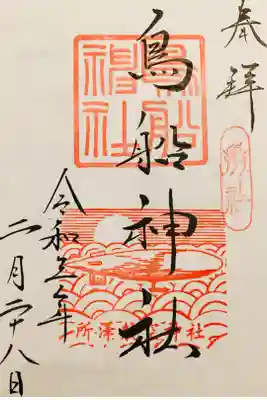 奉拝
鳥船神社
鳥船神社
令和五年
二月二十八日